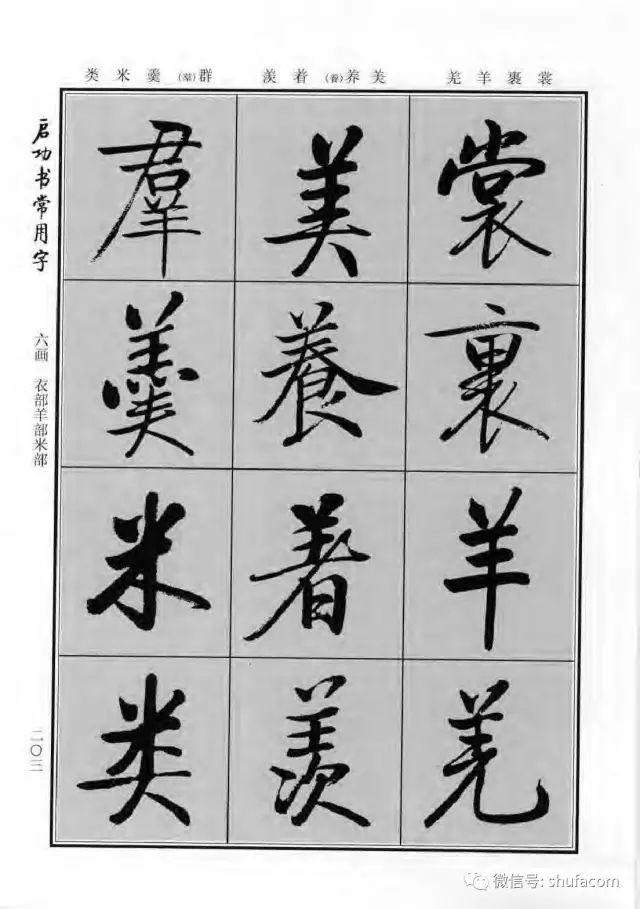 类米羹（羣）群
羡着（養）养美
羌羊裹裳
启功书常用字
六画 衣部羊部米部
二〇三
裳
裹
羊
羌
美
養
着
羡
羣
羹
米
类
微信号: shufacom